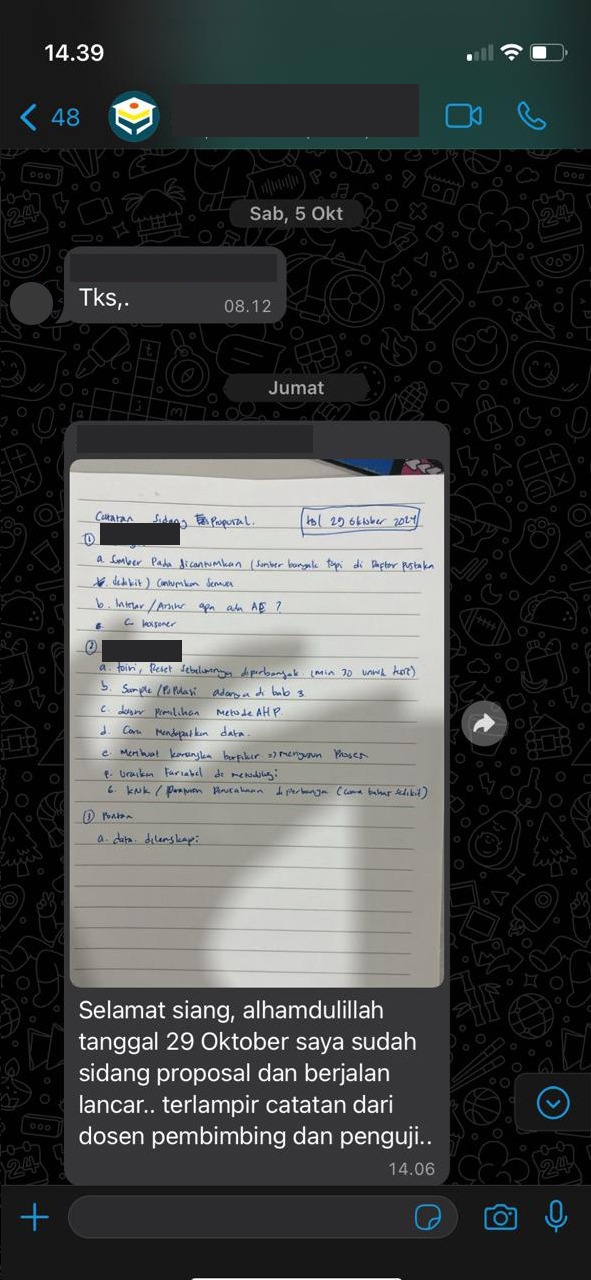 14.39
48
Sab, 5 Okt
Tks,.
08.12
Jumat
Catatan Sidang Proposal.
tgl 29 oktober 2024
①
a. Sumber Pada dicantumkan (sumber banyak tapi di Daftar pustaka
sedikit) Cantumkan semua
b. / apa ada AE ?
c
②
a. teori, Reset sebelumnya diperbanyak (min 30 untuk
b. Sample / Populasi adanya di bab 3
c. dasar Pemilihan Metode AHP
d. Cara Mendapatkan data.
e. Membuat kerangka berfikir => Proses
f. Uraikan Variabel di metodologi
G. KNK / Perusahaan diperbanyak (Cuma bahas sedikit)
③
a. data. dilengkapi
Selamat siang, alhamdulillah
tanggal 29 Oktober saya sudah
sidang proposal dan berjalan
lancar.. terlampir catatan dari
dosen pembimbing dan penguji..
14.06